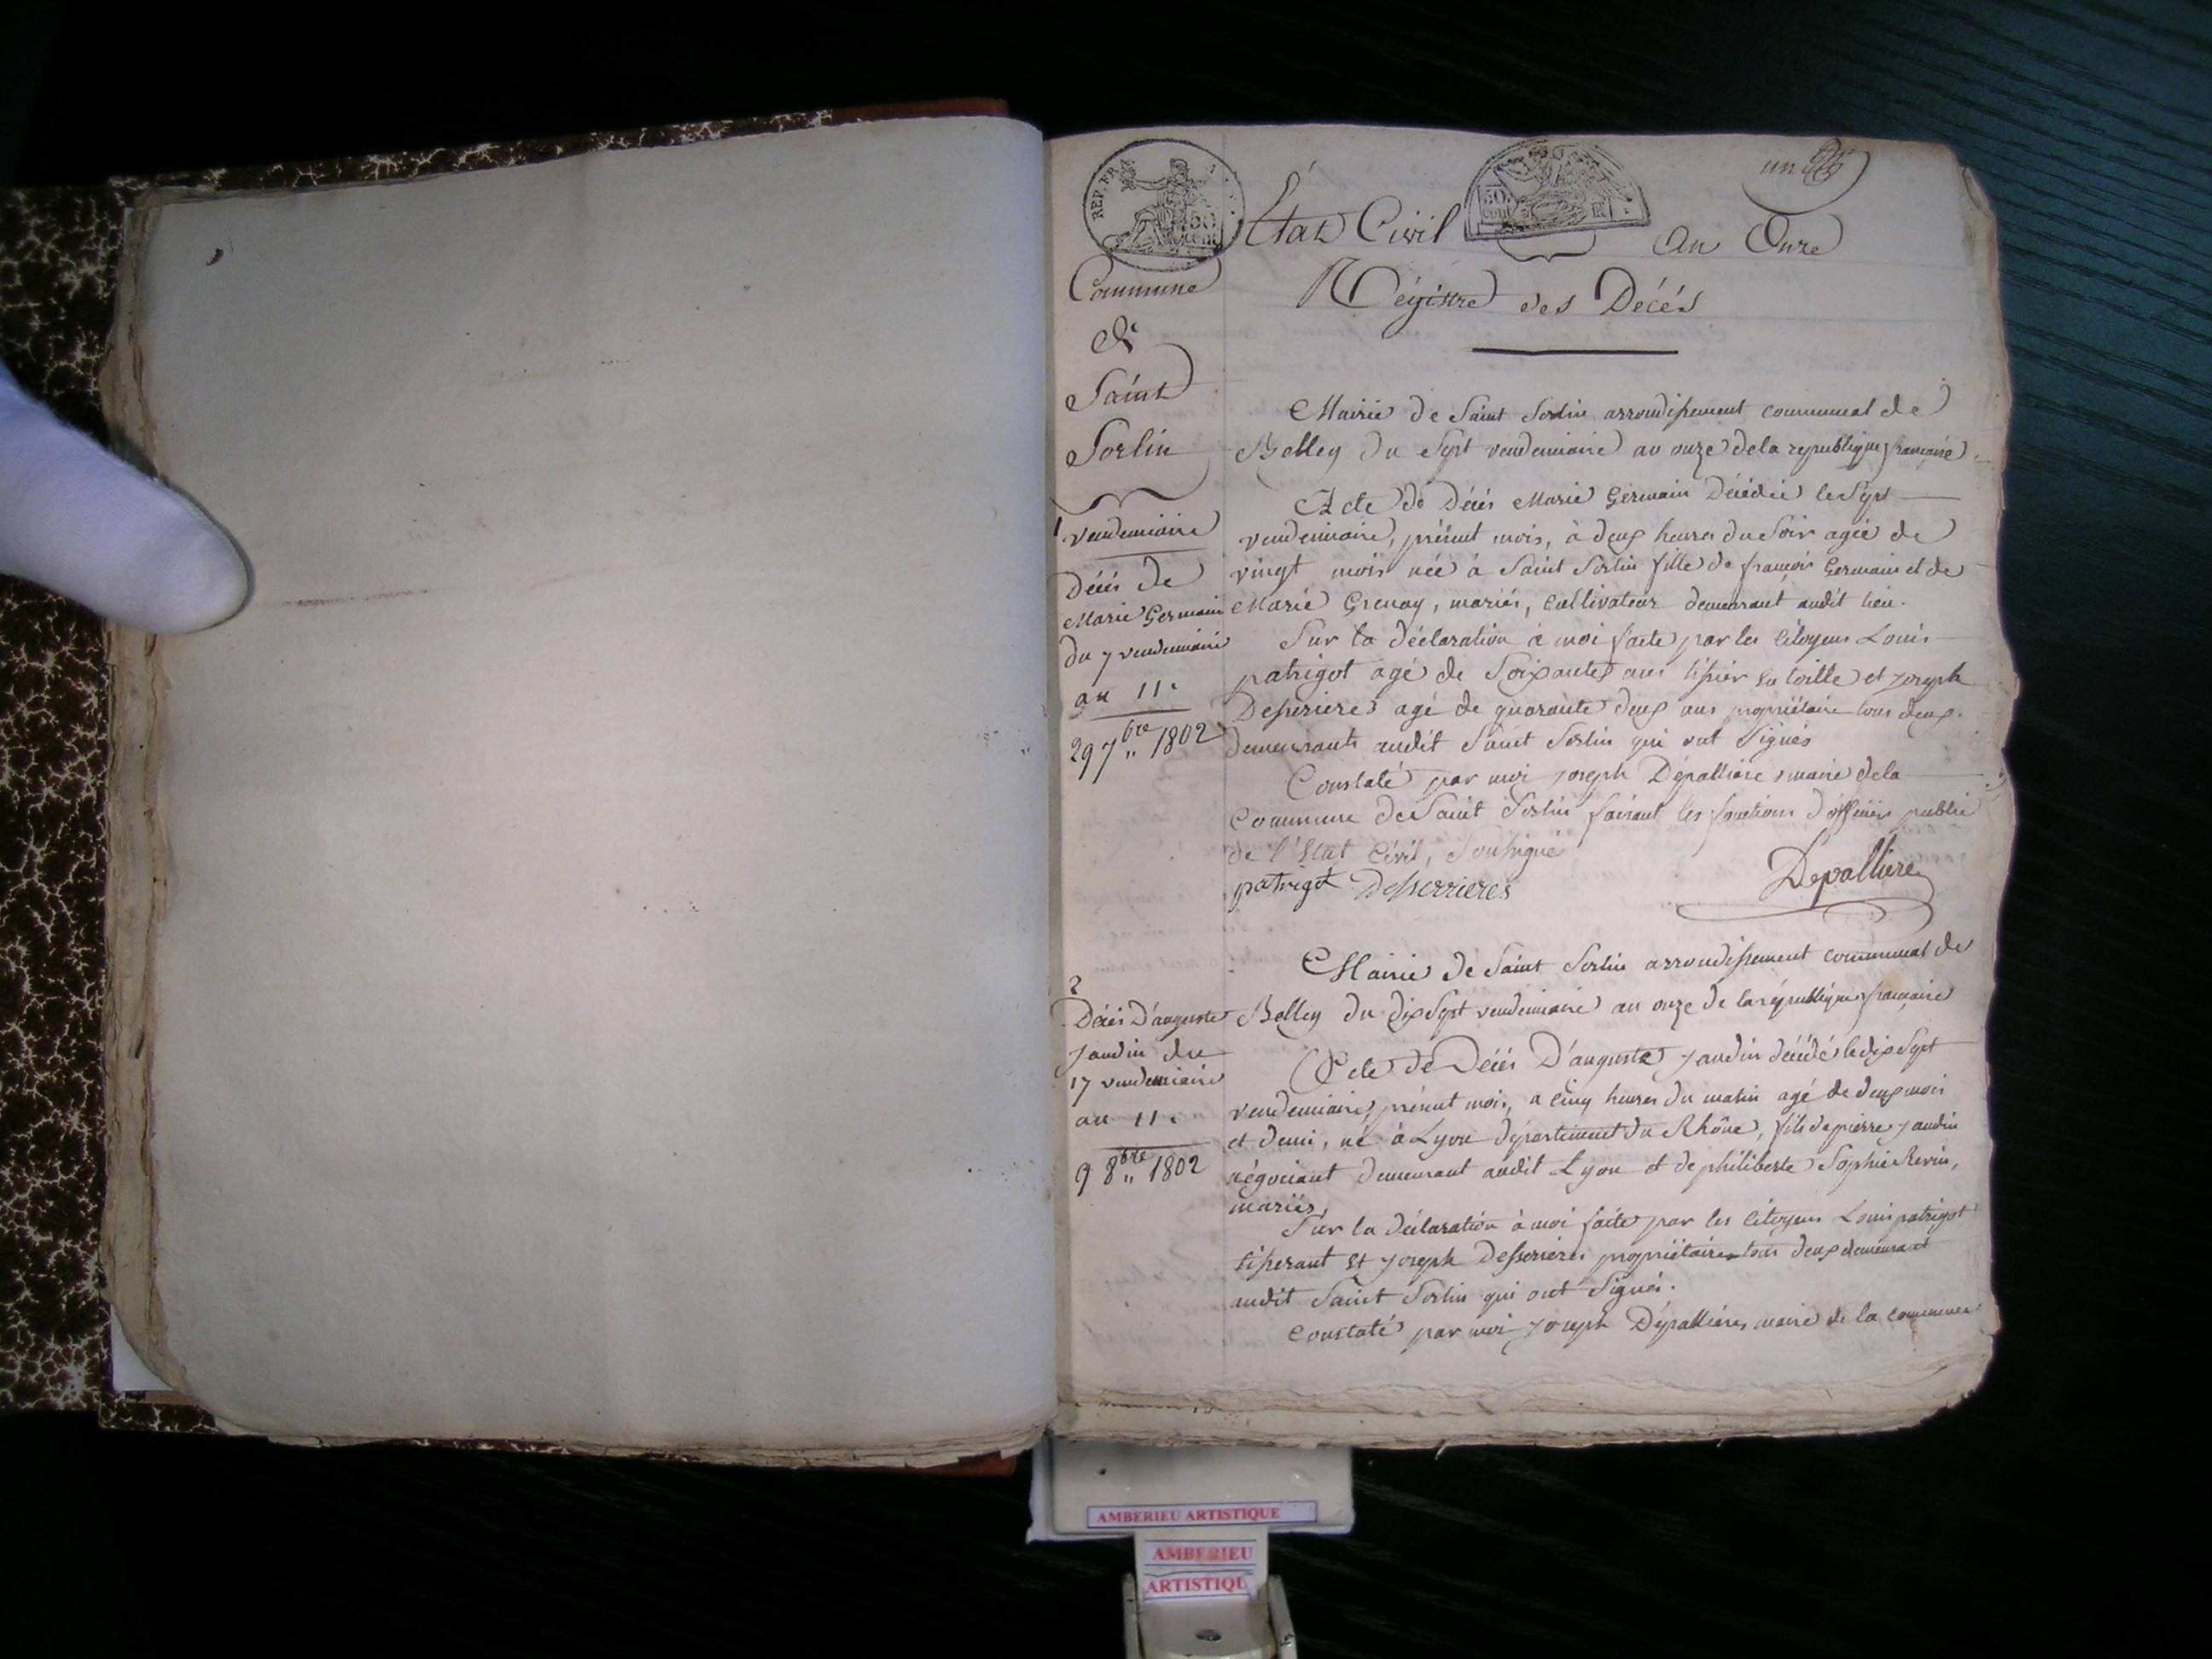 REP. FRA
50
cent
50
cen
un
État Civil
An Onze
Régistre des Décés
Commune
de
Saint
Sorlin
Mairie de Saint Sorlin arrondissement communal de
Belley du Sept vendemiaire an onze de la republique francaise.
1
vendemiaire
Décés de
Marie Germain
du 7 vendemiaire
an 11.
29 7bre 1802
Acte de Décés Marie Germain Décédée le Sept
vendemiaire, présent mois, à deux heures du Soir agée de
vingt mois née à Saint Sorlin fille de françois Germain et de
Marie Grenay, mariés, Cultivateur demeurant audit lieu.
Sur la déclaration à moi faite par les Citoyens Louis
patrigot agé de Soixante ans tissier en toille et Joseph
Desserieres agé de quarante deux ans propriétaire tous deux
demeurants audit Saint Sorlin qui ont Signés
Constaté par moi Joseph Dépalliere maire de la
Commune de Saint Sorlin faisant les fonctions d'officier public
de l'Etat Civil, Soussigné
patrigot Desserrieres
Depalliere
Mairie de Saint Sorlin arrondissement communal de
Belley du dix Sept vendemiaire an onze de la république francaise
2
Décés D'auguste
Jandin du
17 vendemiaire
an 11.
9 8bre 1802
Acte de Décés D'auguste Jandin décédé le dix Sept
vendemiaire, présent mois, a cinq heures du matin agé de deux mois
et demi, né à Lyon département du Rhône, fils de pierre Jandin
négociant demeurant audit Lyon et de philiberte Sophie
mariés,
Sur la déclaration à moi faite par les Citoyens Louis patrigot
tisserant et Joseph Desserieres propriétaires tous deux demeurant
audit Saint Sorlin qui ont Signés.
Constaté par moi Joseph Dépalliere maire de la commune
AMBERIEU ARTISTIQUE
AMBERIEU
ARTISTIQU